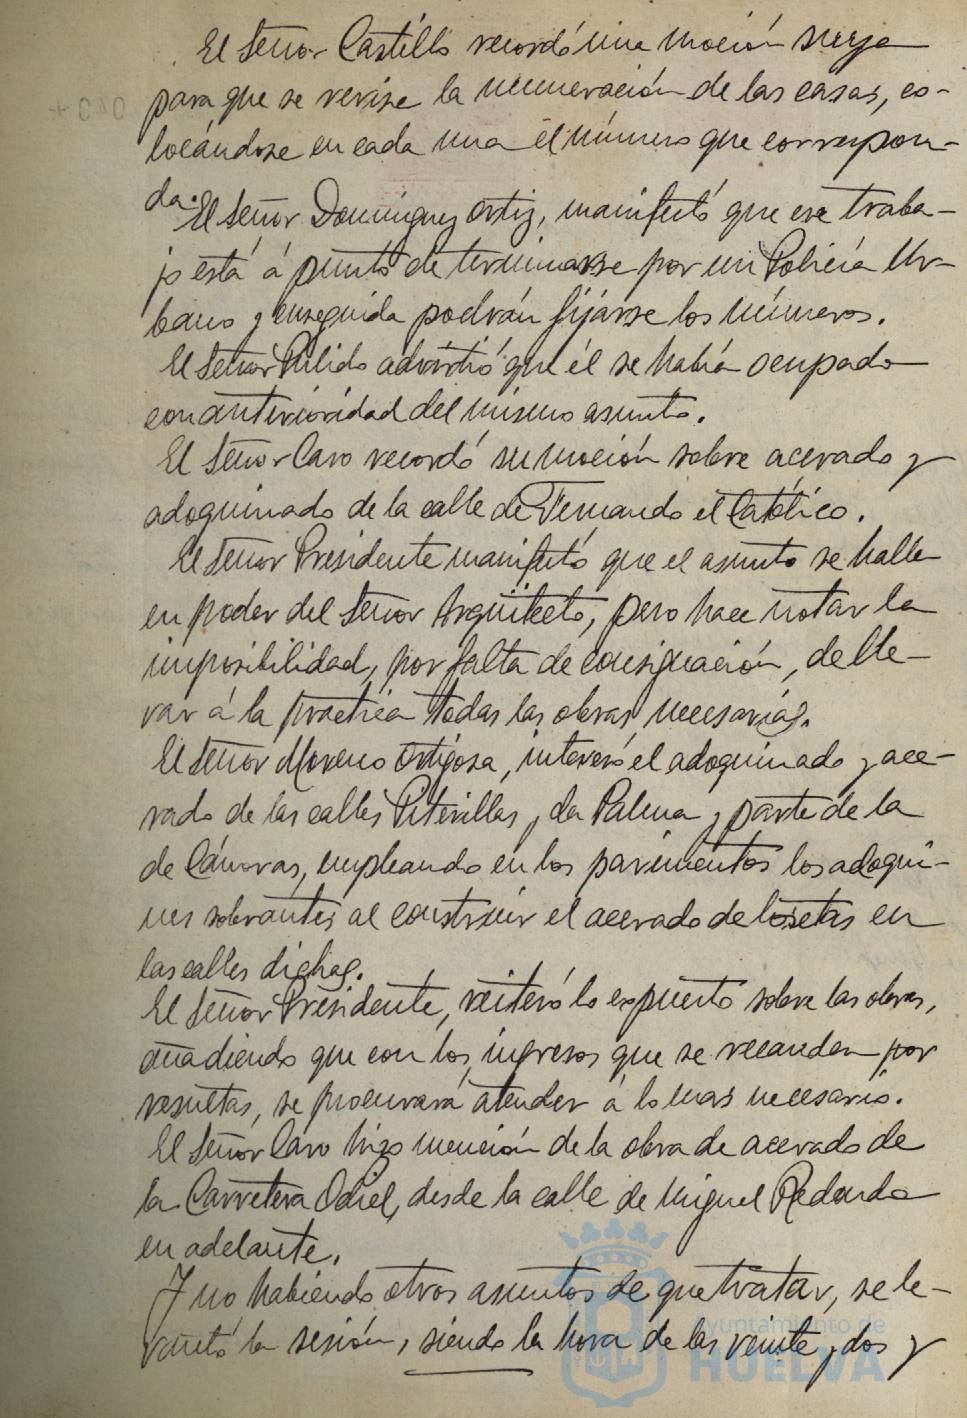 El Señor Castillo recordó una moción suya
para que se revise la numeración de las casas, co-
locándose en cada una el número que correspon-
da.
El Señor Domínguez Ortiz, manifestó que ese traba-
jo está á punto de terminarse por un Policía Ur-
bano y enseguida podrán fijarse los números.
El Señor Pulido advirtió que él se había ocupado
con anterioridad del mismo asunto.
El Señor Caro recordó su moción sobre acerado y
adoquinado de la calle de Fernando el Católico.
El Señor Presidente manifestó que el asunto se halla
en poder del Señor Arquitecto, pero hace notar la
imposibilidad, por falta de consignación, de lle-
var á la practica todas las obras necesarias.
El Señor Moreno Ortigosa, interesó el adoquinado y ace-
rado de las calles Puterillas, La Palma y parte de la
de Cánovas, empleando en los pavimentos los adoqui-
nes sobrantes al construir el acerado de losetas en
las calles dichas.
El Señor Presidente, reiteró lo expuesto sobre las obras,
añadiendo que con los ingresos que se recauden por
resultas, se procurará atender á lo mas necesario.
El Señor Caro hizo mención de la obra de acerado de
la Carretera Odiel, desde la calle de Miguel Redondo
en adelante.
Y no habiendo otros asuntos de que tratar, se le-
vantó la sesión, siendo la hora de las veinte y dos y
Ayuntamiento de
HUELVA